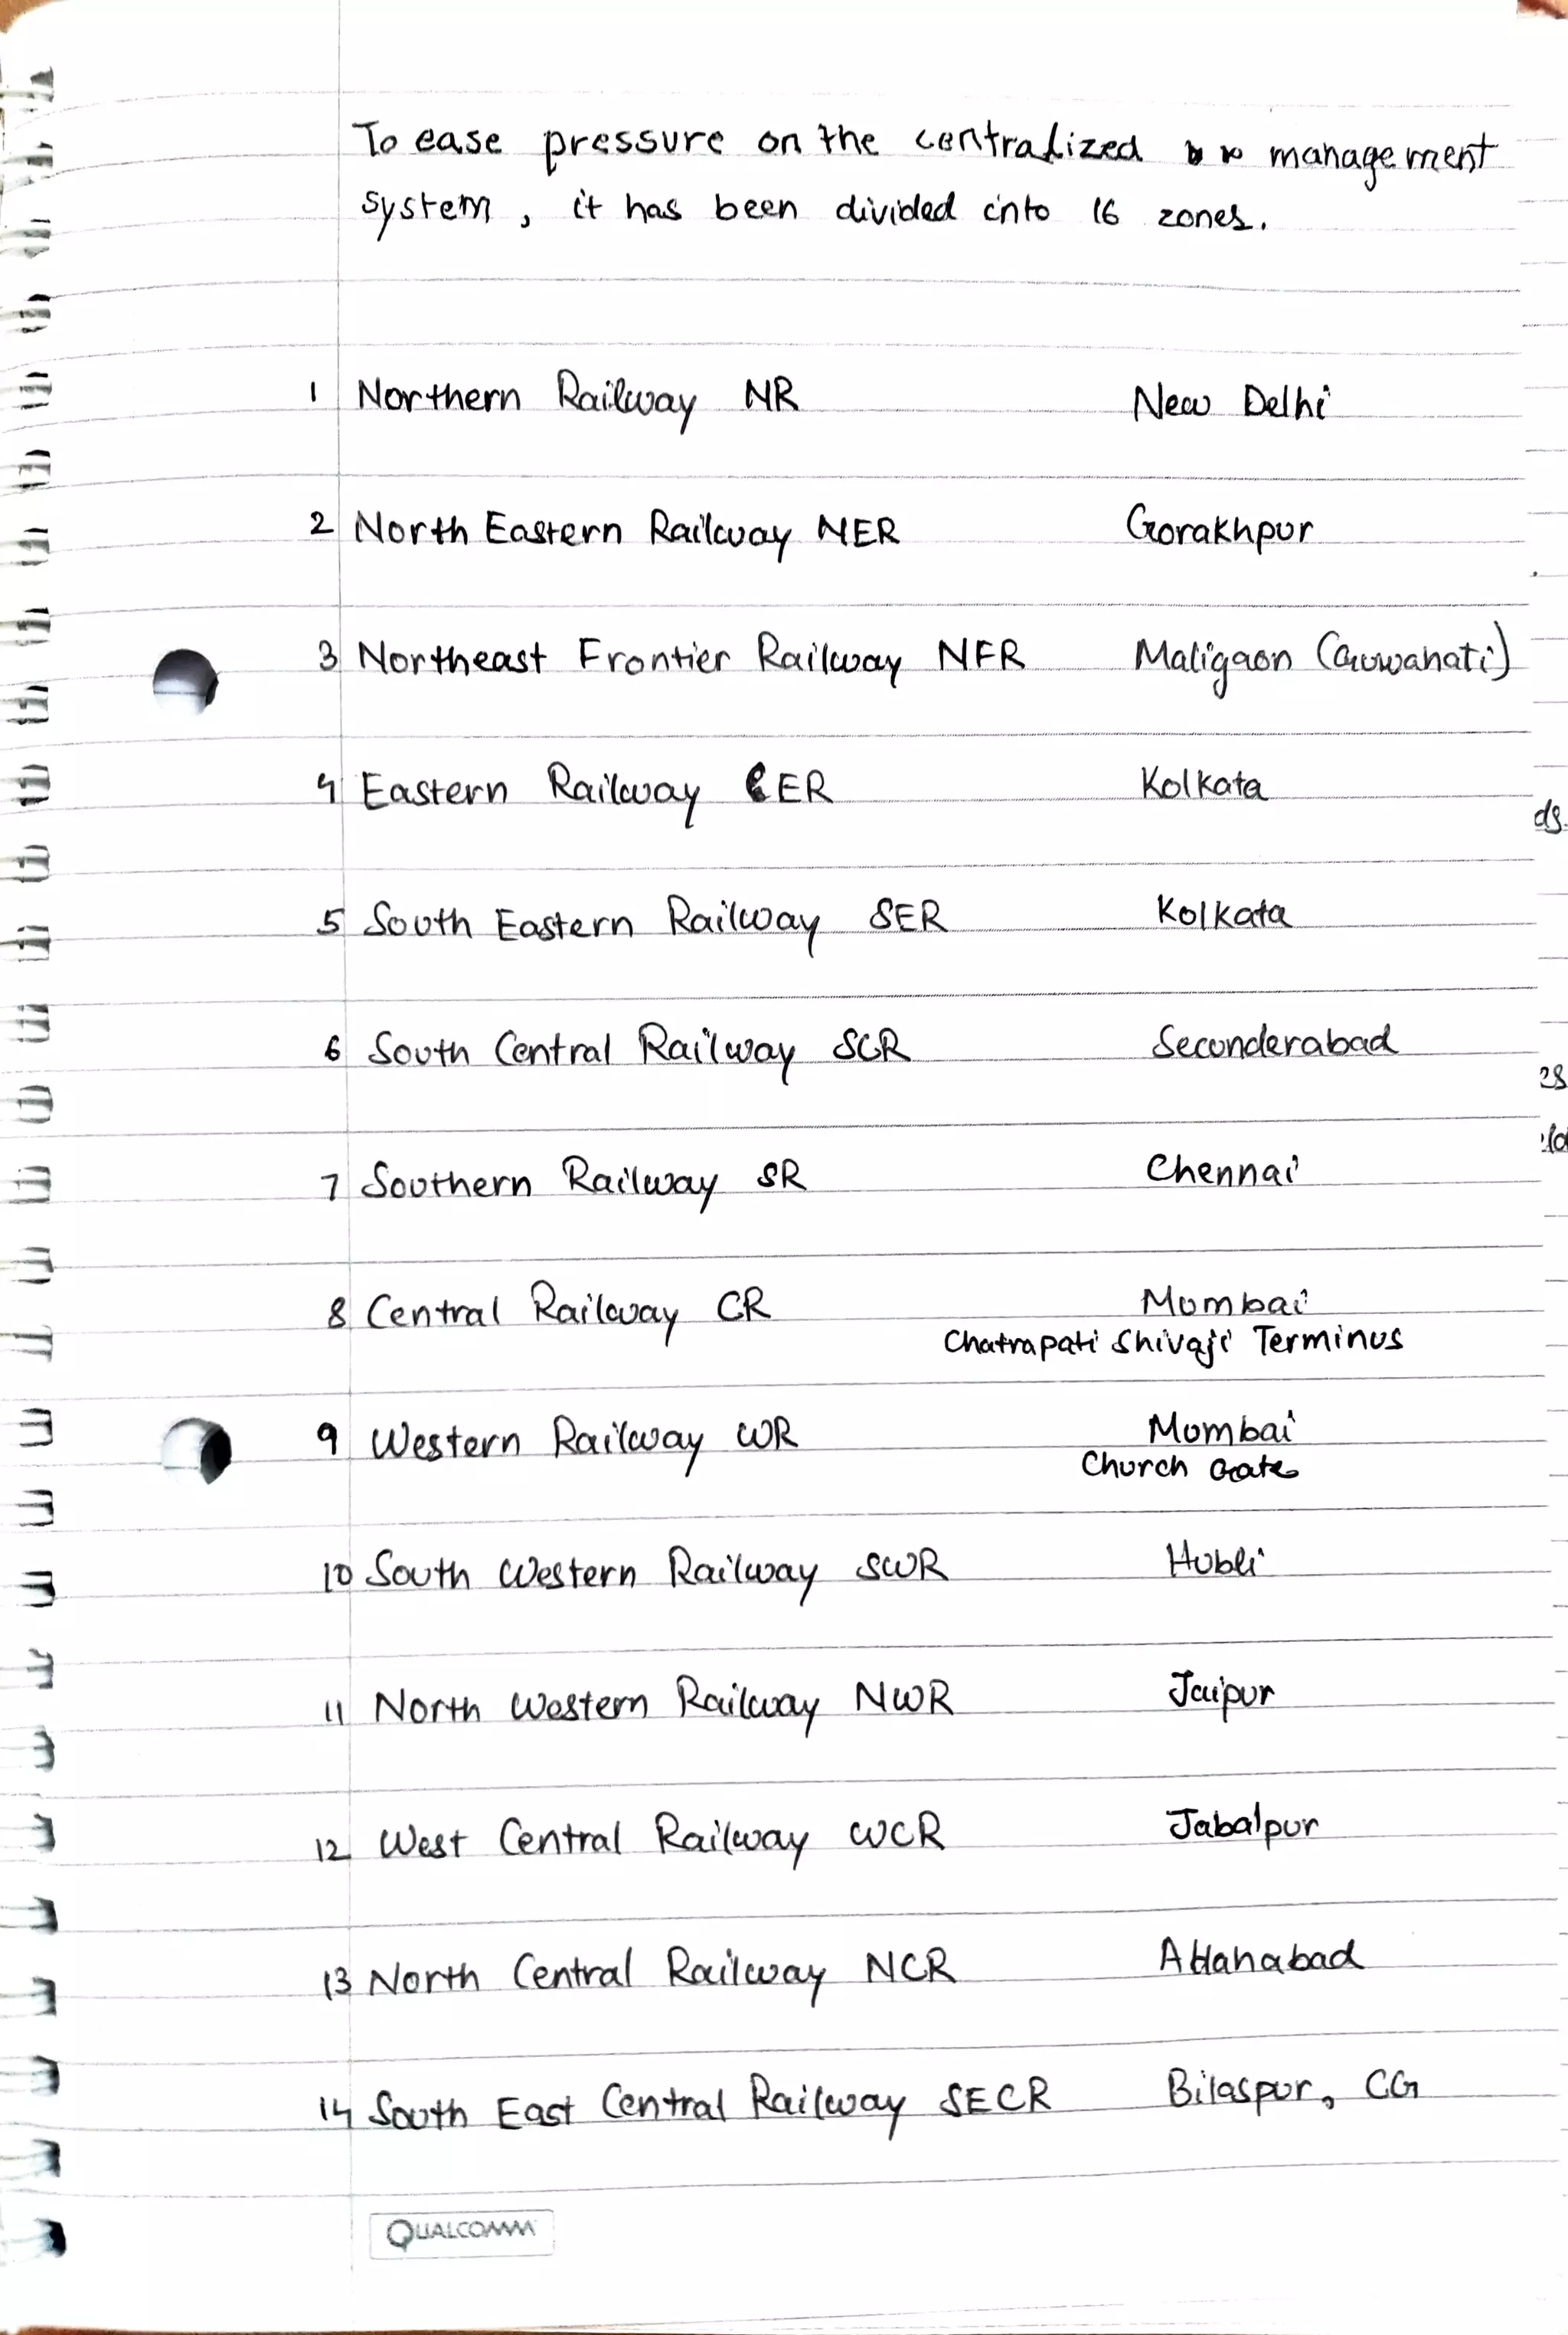 To ease pressure on the centralized management
system, it has been divided into 16 zones.
1 Northern Railway NR New Delhi
2 North Eastern Railway NER Gorakhpur
3 Northeast Frontier Railway NFR Maligaon (Guwahati)
4 Eastern Railway ER Kolkata
ds.
5 South Eastern Railway SER Kolkata
6 South Central Railway SCR Seconderabad
es
7 Southern Railway SR Chennai
8 Central Railway CR Mumbai
Chatrapati Shivaji Terminus
9 Western Railway WR Mumbai
Church Gate
10 South Western Railway SWR Hubli
11 North Western Railway NWR Jaipur
12 West Central Railway WCR Jabalpur
13 North Central Railway NCR Allahabad
14 South East Central Railway SECR Bilaspur, CG
QUALCOMM